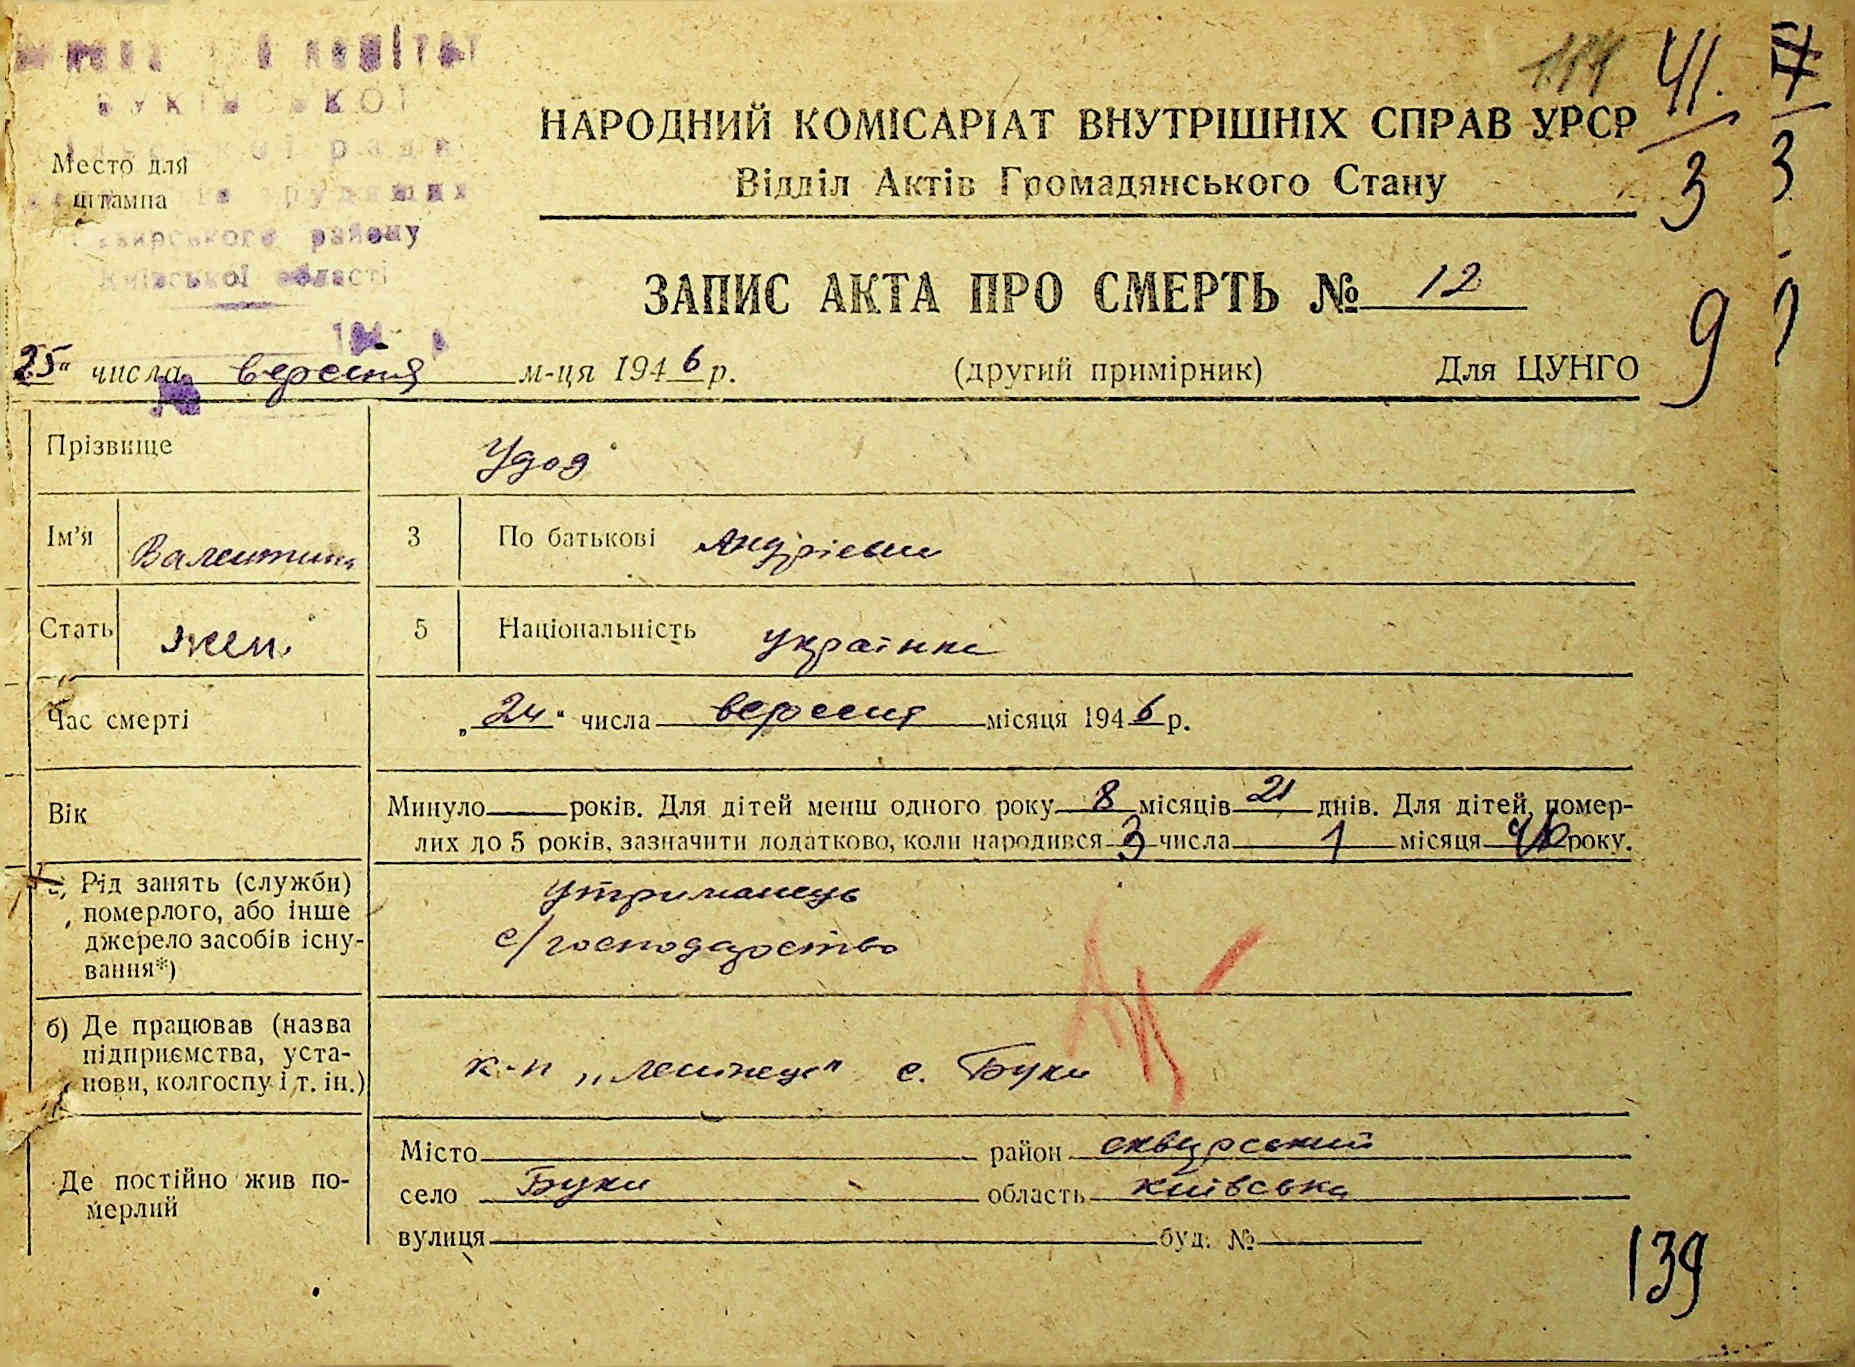 КОМІТЕТ
БУКІВСЬКОЇ
ради
Место для
штампа
трудящих
району
Київської області
194 р
НАРОДНИЙ КОМІСАРІАТ ВНУТРІШНІХ СПРАВ УРСР
Відділ Актів Громадянського Стану
41. 3
3
9
ЗАПИС АКТА ПРО СМЕРТЬ № 12
25" числа вересня м-ця 1946 р. (другий примірник) Для ЦУНГО
Прізвище Удод
Ім'я Валентина 3 По батькові Андріевна
Стать жен. 5 Національність українка
Час смерті „24" числа вересня місяця 1946 р.
Вік Минуло років. Для дітей менш одного року 8 місяців 21 днів. Для дітей, помер-
лих до 5 років, зазначити додатково, коли народився 3 числа 1 місяця 46 року.
а) Рід занять (служби)
померлого, або інше
джерело засобів існу-
вання*)
утриманець
с/господарство
б) Де працював (назва
підприємства, уста-
нови, колгоспу і т. ін.)
к-п с. Буки
Де постійно жив по-
мерлий
Місто район сквирський
село Буки область київська
вулиця буд. №
139